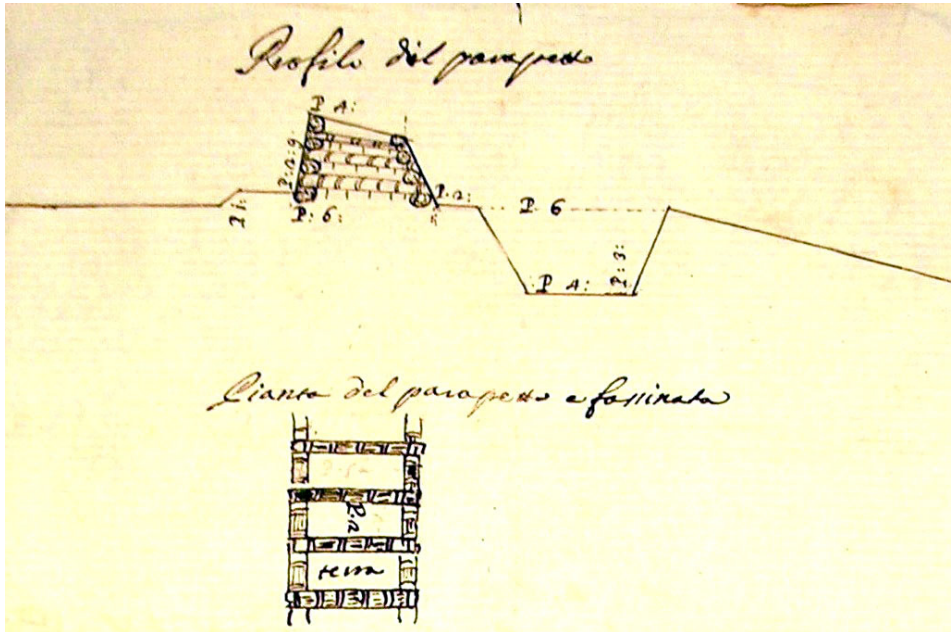 Profilo del parapetto
P 4:
P: 2: 9
P. 2:
P 1:
P: 6:
P 6
P 4:
P: 3:
Pianta del parapetto e fassinata
P. 2
terra